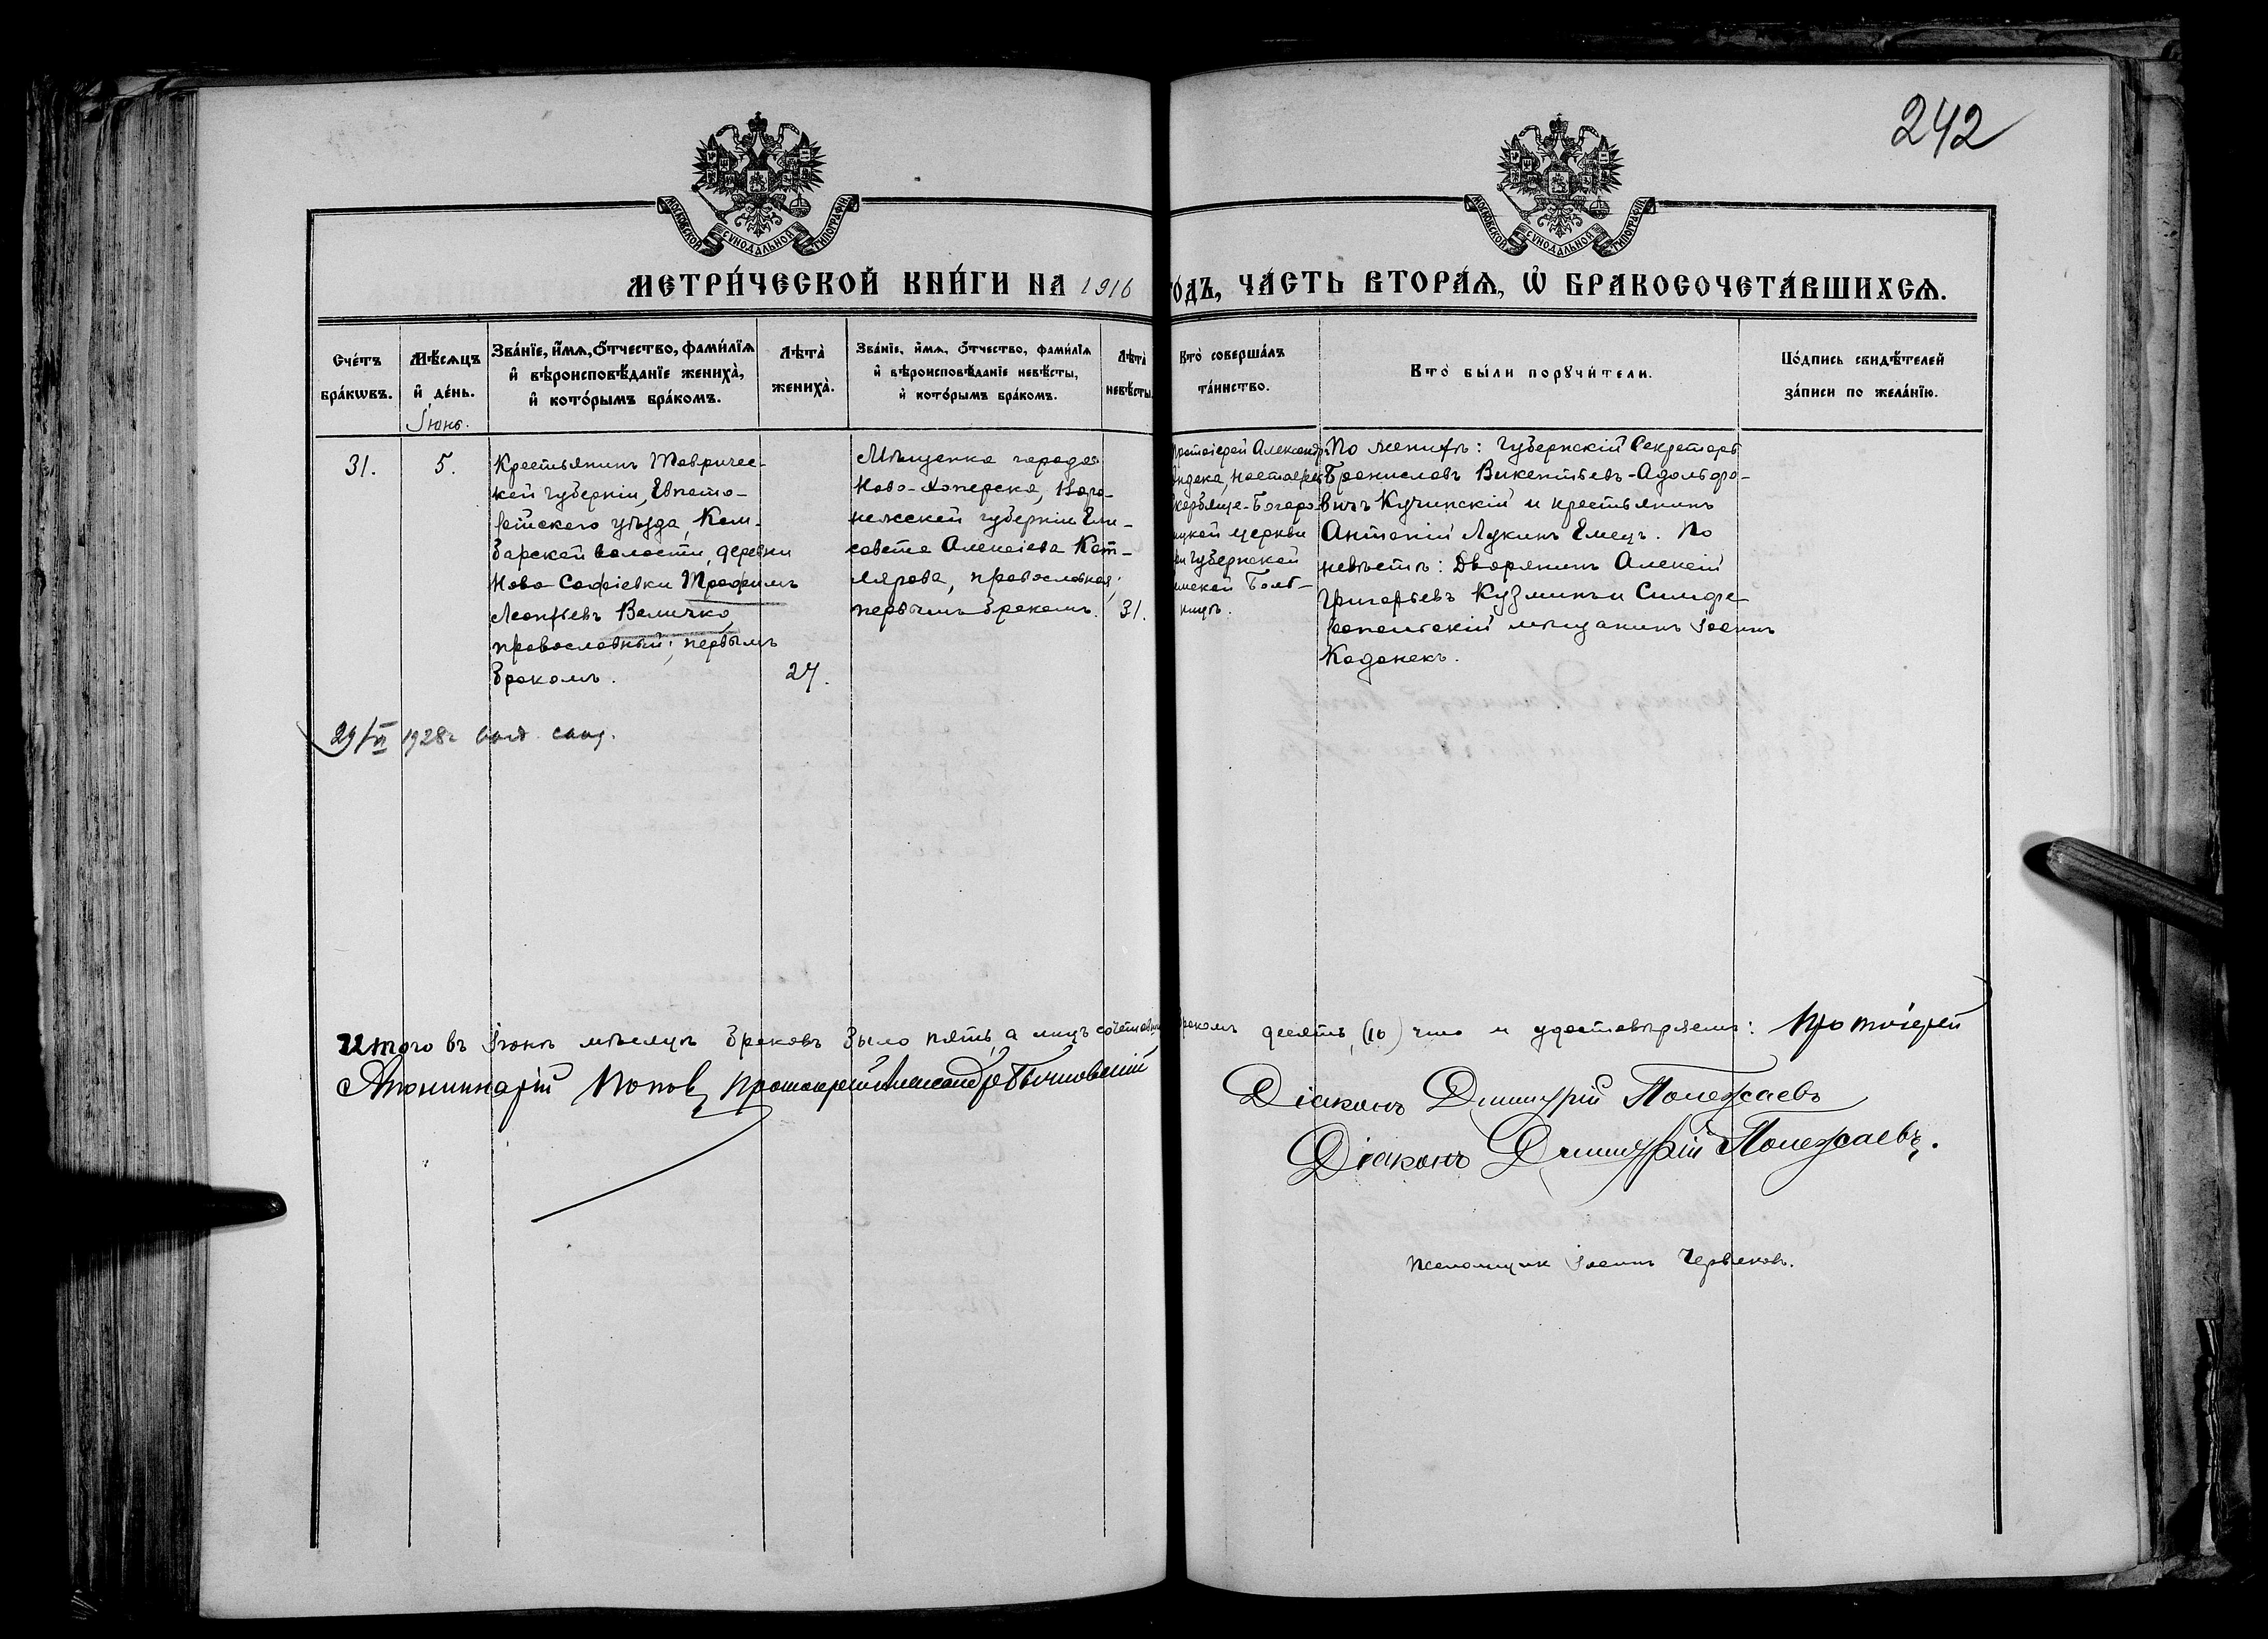 242
МОСКОВСКОЙ СУНОДАЛЬНОЙ ТИПОГРАФІИ
МОСКОВСКОЙ СУНОДАЛЬНОЙ ТИПОГРАФІИ
МЕТРИ́ЧЕСКОЙ КНИ́ГИ НА 1916
ГО́ДЪ, ЧА́СТЬ ВТОРА́Ѧ, Ѽ БРАКОСОЧЕТА́ВШИХСѦ.
Сче́тъ
бра́кѡвъ.
Мѣ́сѧцъ
и҆ де́нь.
Іюнь.
Зва́нїе, и҆́мѧ, ѻ҆́тчество, фами́лїѧ
и҆ вѣроисповѣ́данїе жениха̀,
и҆ кото́рымъ бра́комъ.
Лѣта̀
жениха̀.
Зва́нїе, и҆́мѧ, ѻ҆́тчество, фами́лїѧ
и҆ вѣроисповѣ́данїе невѣ́сты,
и҆ кото́рымъ бра́комъ.
Лѣта̀
невѣ́сты.
Кто̀ соверша́лъ
та́инство.
Кто̀ бы́ли порꙋчи́тели.
По́дпись свидѣ́телей
за́писи по жела́нїю.
31.
5.
Крестьянинъ Тавричес-
кой губерніи, Евпато-
рійскаго уѣзда, Кам-
барской волости, деревни
Ново-Софіевки Трофимъ
Леонтіевъ Величко,
православный; первымъ
бракомъ.
24.
Мѣщанка города
Ново-Хоперска, Воро-
нежской губерніи Ели-
савета Алексіева Кот-
лярова, православная;
первымъ бракомъ.
31.
Протоіерей Александръ
настоятель
Скорбяще-Богоро-
ицкой церкви
Губернской
Земской Боль-
ницѣ.
По женихѣ: Губернскій Секретарь
Брониславъ Викентьевъ-Адольфо-
вичъ Кучинскій и крестьянинъ
Антоній Лукинъ Емецъ. По
невѣстѣ: Дворянинъ Алексій
Григорьевъ Кузминъ и Симфе-
ропольскій мѣщанинъ Іоаннъ
Каданекъ.
29/VI 1928г
Итого въ Іюнѣ мѣсяцѣ браковъ было пять, а лицъ сочетавш бракомъ десять (10) что и удостовѣряемъ: Протоіерей
Аполлинарій Поповъ, Протоіерей Александръ
Діаконъ Дмитрій Полежаевъ
Діаконъ Дмитрій Полежаевъ.
Псаломщик Іоаннъ Червяковъ.